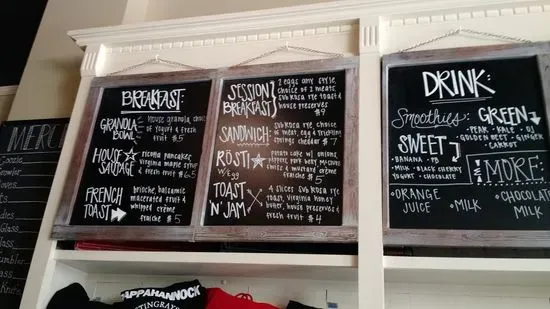 MERC
BREAKFAST:
GRANOLA BOWL
House granola, choice
of yogurt & fresh
fruit $5
HOUSE SAUSAGE
ricotta pancakes,
Virginia maple syrup
& fresh fruit $6.5
FRENCH TOAST
brioche, balsamic
macerated fruit &
whipped crème
fraiche $5
SESSION BREAKFAST
2 eggs any style,
choice of 2 meats,
sub rosa rye toast &
house preserves
$9
SANDWICH
sub rosa rye, choice
of meat, egg &
springs cheddar $7
RÖSTI
w/egg
potato cake w/ onions,
peppers,
$5
TOAST 'N' JAM
4 slices sub rosa rye
toast, Virginia honey
butter, house preserves &
fresh fruit $4
DRINK:
Smoothies:
GREEN
• PEAR • KALE • OJ
GOLDEN BEET • GINGER
CARROT
SWEET
BANANA • PB
MILK • BLACK CHERRY
YOGURT • CHOCOLATE
MORE:
• ORANGE JUICE
• MILK
• CHOCOLATE MILK
RAPPAHANNOCK
STINGRAYS